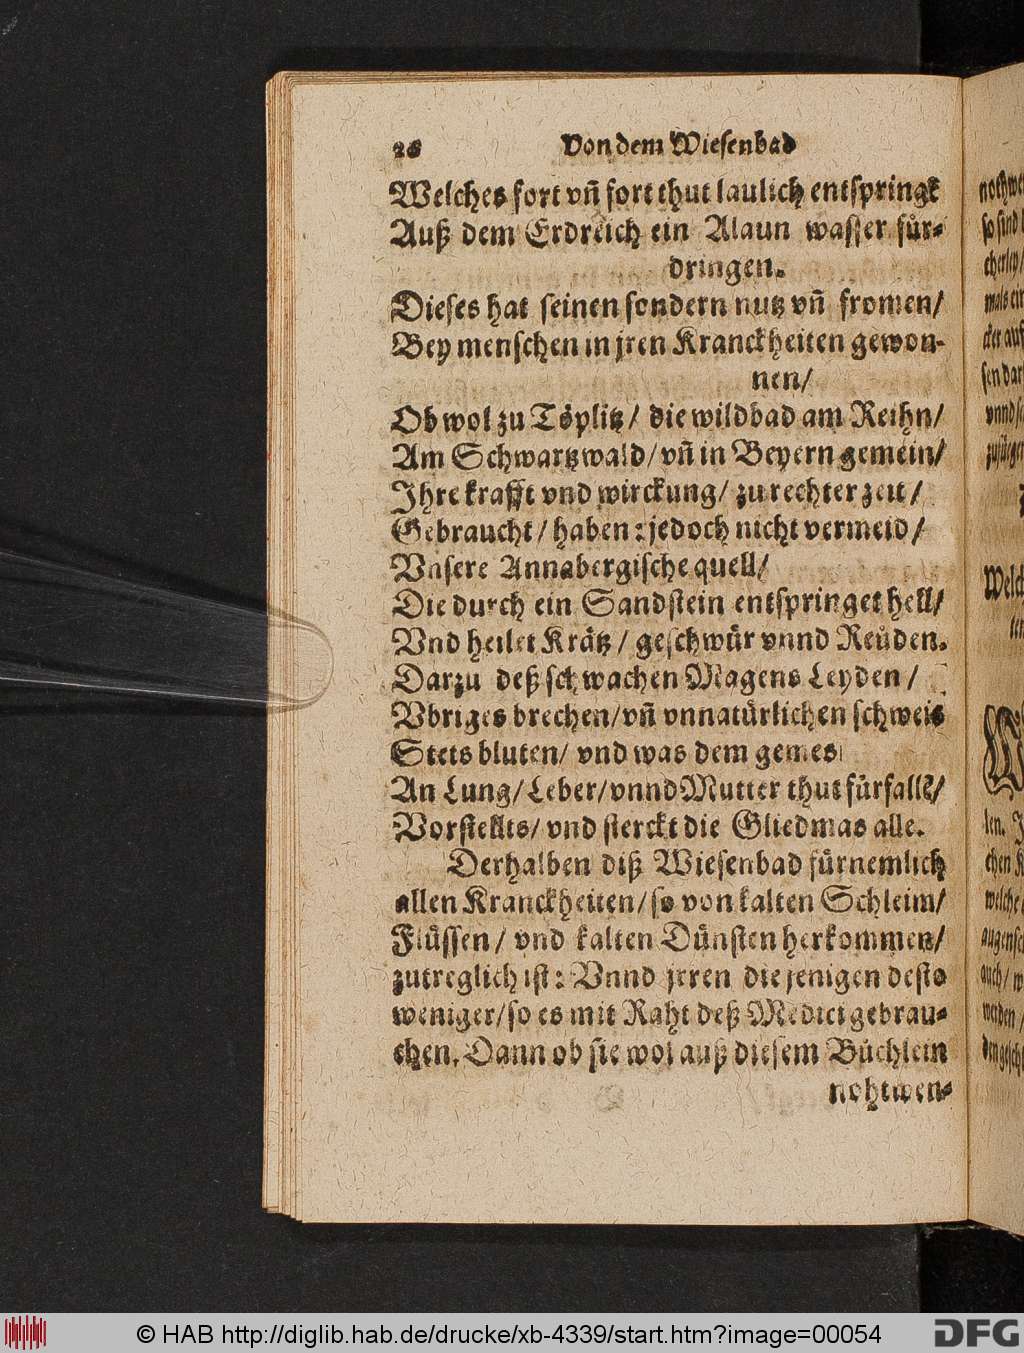 26 Von dem Wiesenbad
Welches fort vñ fort thut laulich entspringẽ
Auß dem Erdreich ein Alaun wasser fůr-
dringen.
Dieses hat seinen sondern nutz vñ fromen/
Bey menschen in jren Kranckheiten gewon-
nen/
Ob wol zu Tőplitz/ die wildbad am Reihn/
Am Schwartzwald/ vñ in Beyern gemein/
Ihre krafft vnd wirckung/ zu rechter zeit/
Gebraucht/ haben: jedoch nicht vermeid/
Vnsere Annabergische quell/
Die durch ein Sandstein entspringet hell/
Vnd heilet Krätz/ geschwür vnnd Reůden.
Darzu deß schwachen Magens Leyden/
Vbriges brechen/ vñ vnnatürlichen schweis
Stets bluten/ vnd was dem gemes
An Lung/ Leber/ vnnd Mutter thut fürfallẽ/
Vorstellts/ vnd sterckt die Gliedmas alle.
Derhalben diß Wiesenbad fürnemlich
allen Kranckheiten/ so von kalten Schleim/
Flüssen/ vnd kalten Dünsten herkommen/
zutreglich ist: Vnnd jrren die jenigen desto
weniger/ so es mit Raht deß Medici gebrau-
chen. Dann ob sie wol auß diesem Bůchlein
nohtwen-
© HAB http://diglib.hab.de/drucke/xb-4339/start.htm?image=00054
DFG